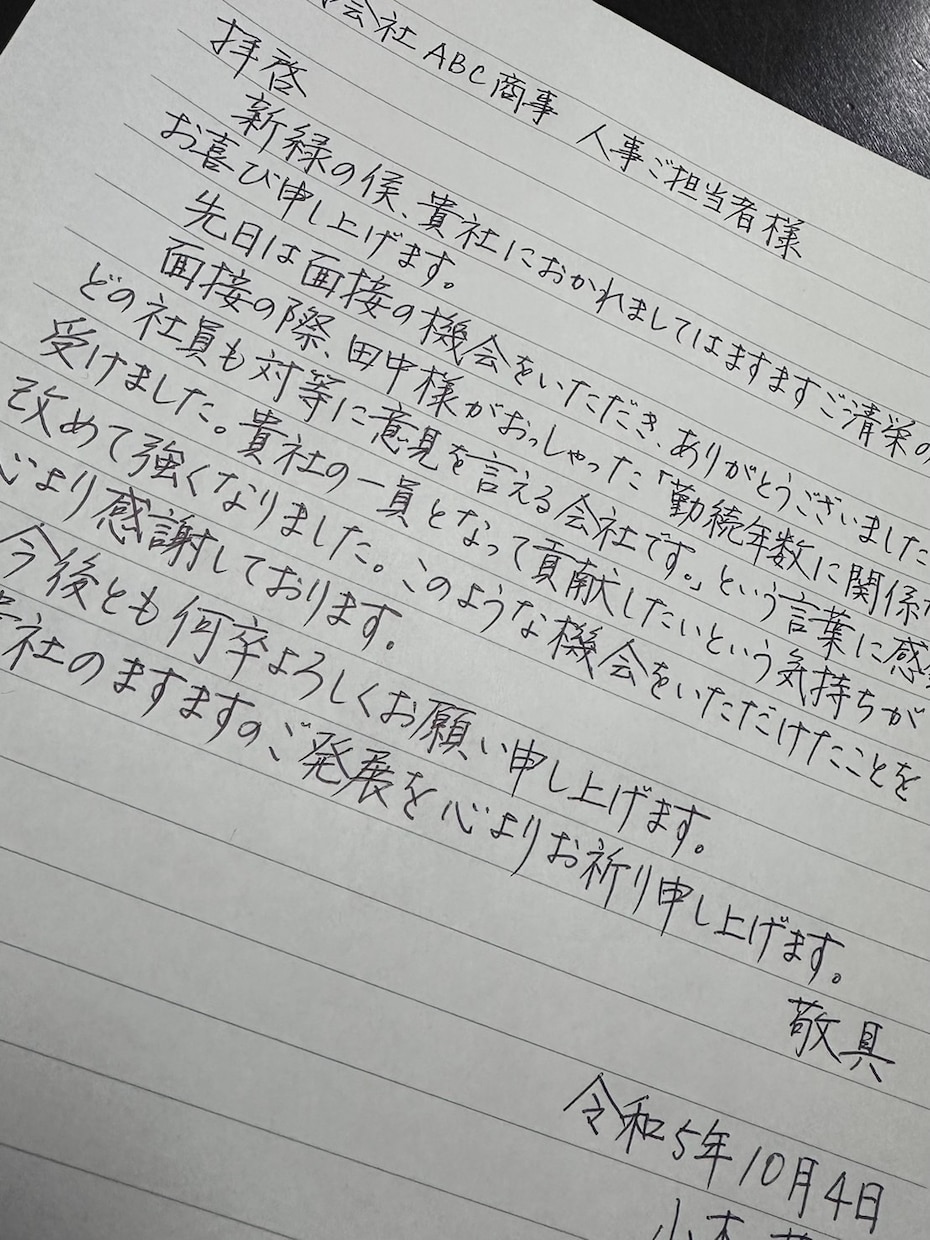 会社ABC商事 人事ご担当者様
拝啓
新緑の候、貴社におかれましてはますますご清栄の
お喜び申し上げます。
先日は面接の機会をいただき、ありがとうございました
面接の際、田中様がおっしゃった「勤続年数に関係
どの社員も対等に意見を言える会社です。」という言葉に感
受けました。貴社の一員となって貢献したいという気持ちが
改めて強くなりました。このような機会をいただけたことを
心より感謝しております。
今後とも何卒よろしくお願い申し上げます。
貴社のますますのご発展を心よりお祈り申し上げます。
敬具
令和5年10月4日